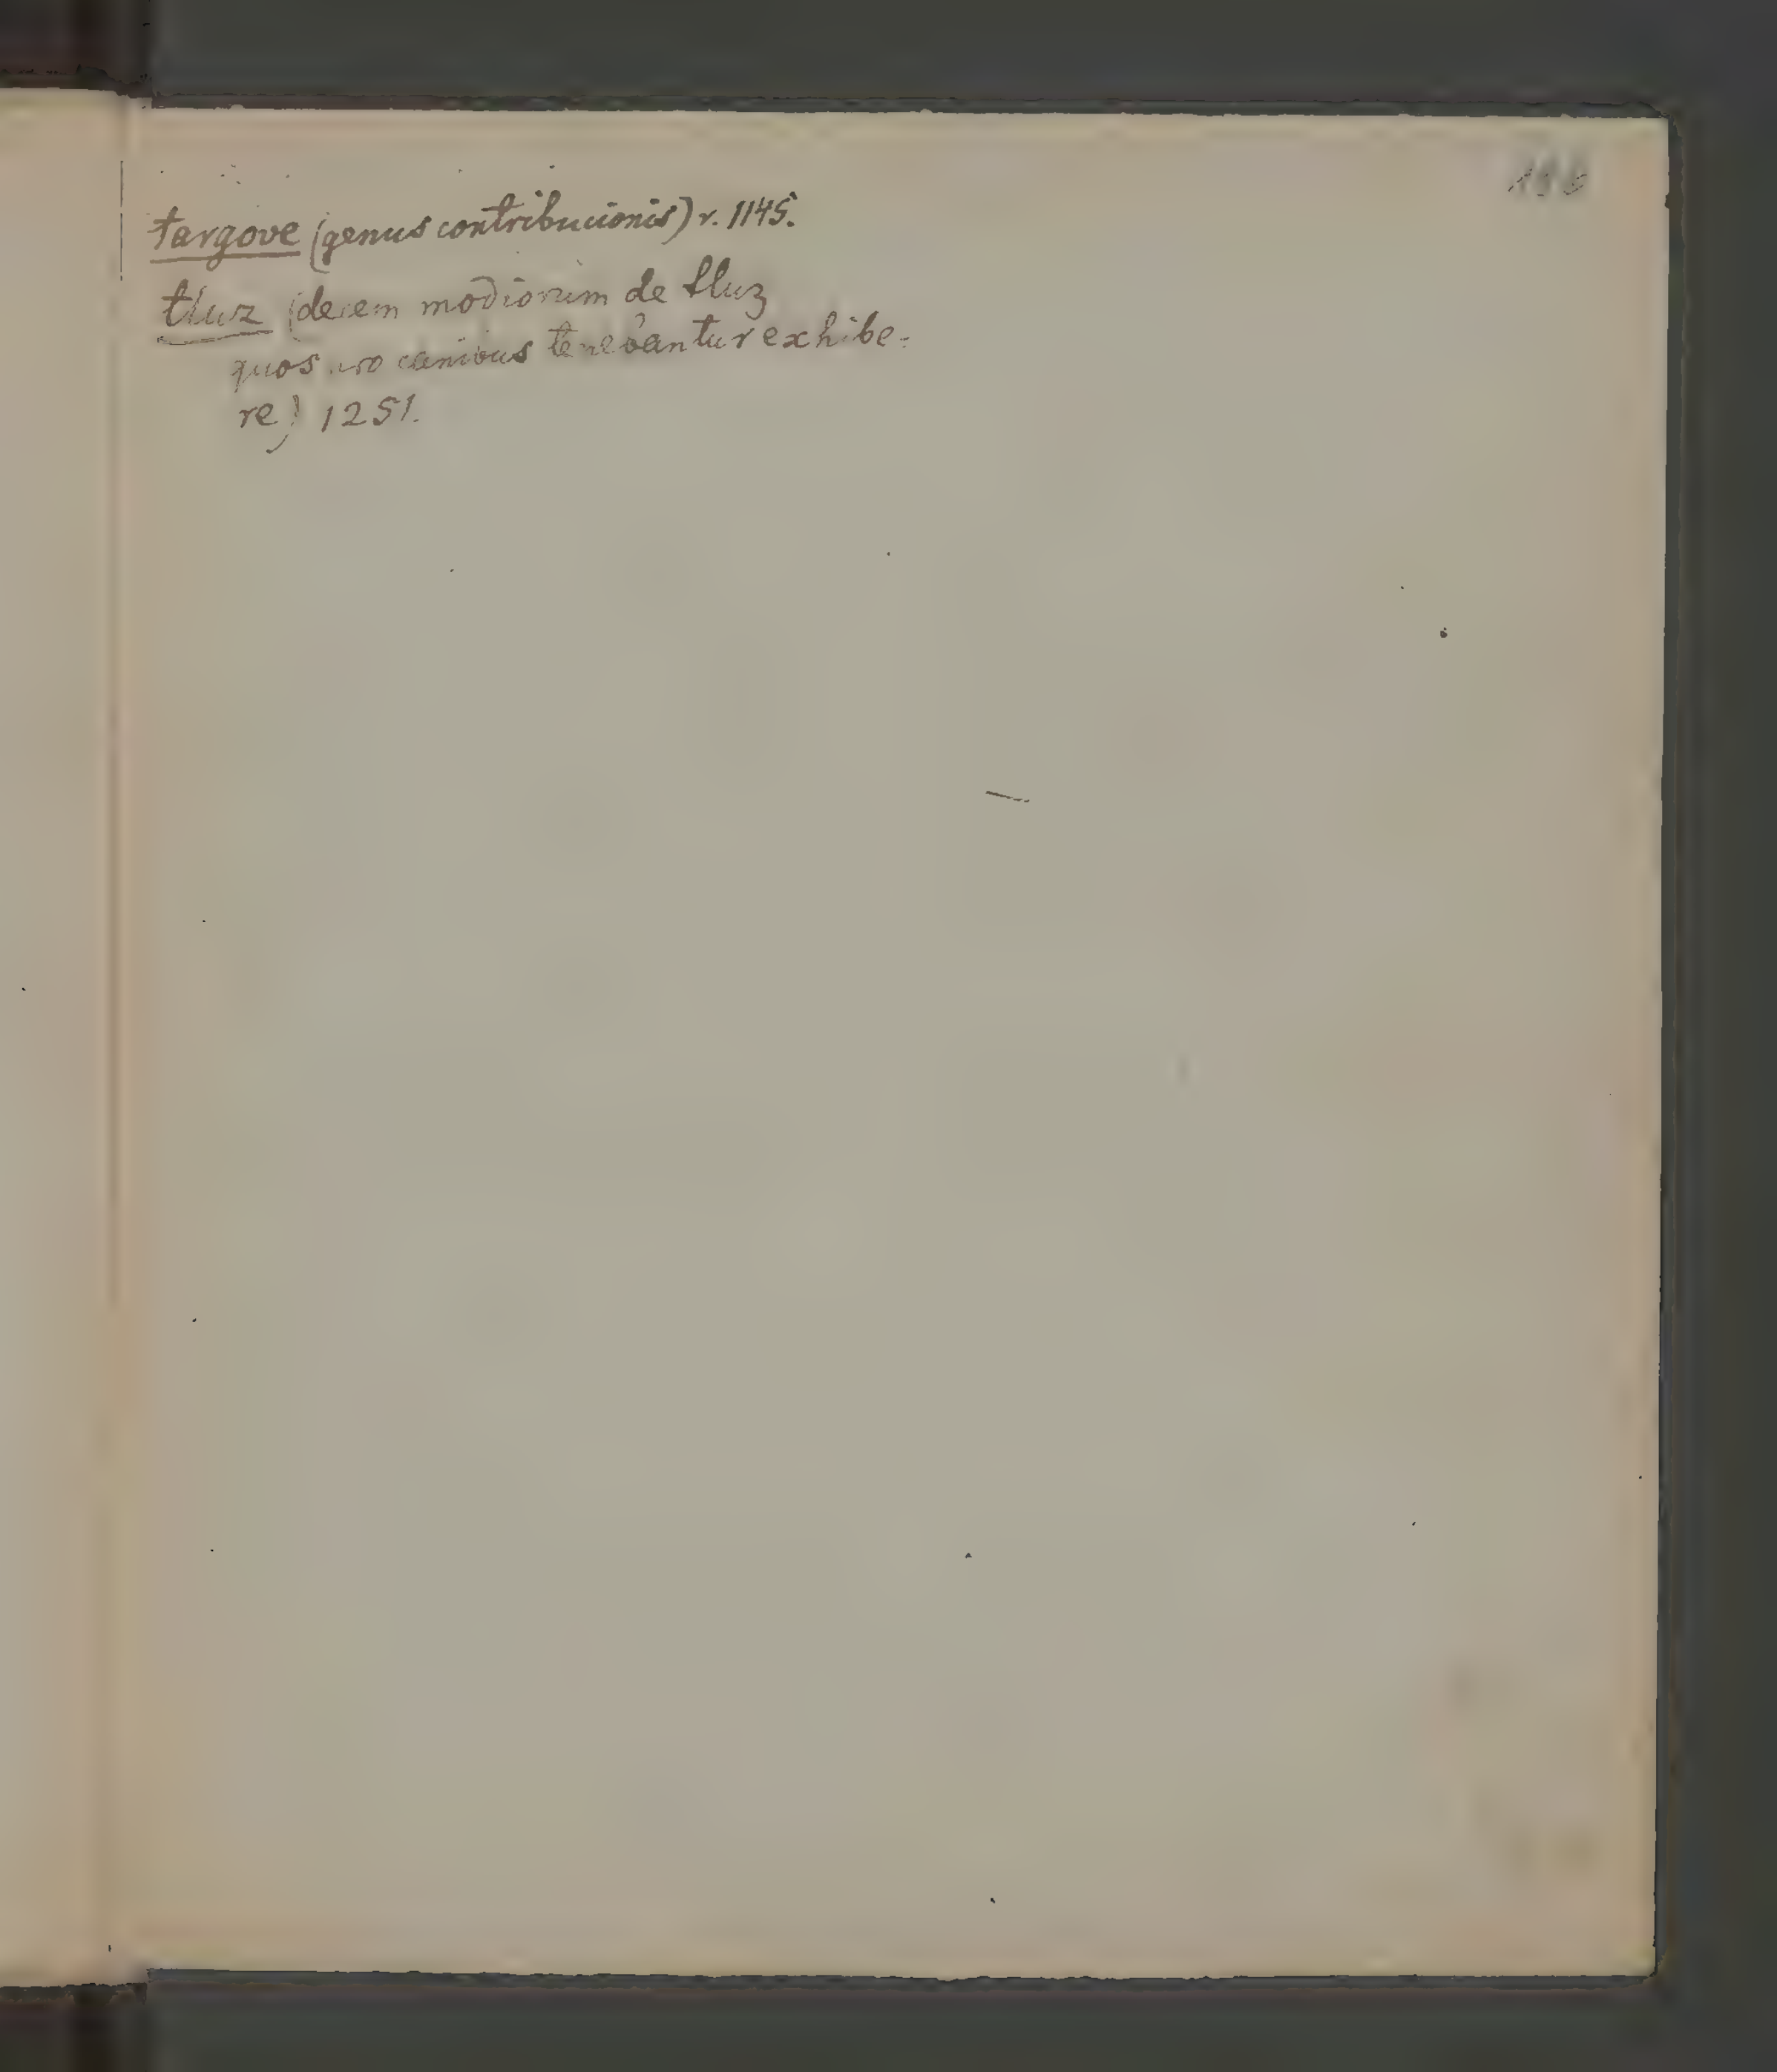 targove (genus contribucionis) r. 1145.
tluz (decem modiorum de tluz
quos pro canibus tenebantur exhibe-
re) 1251.